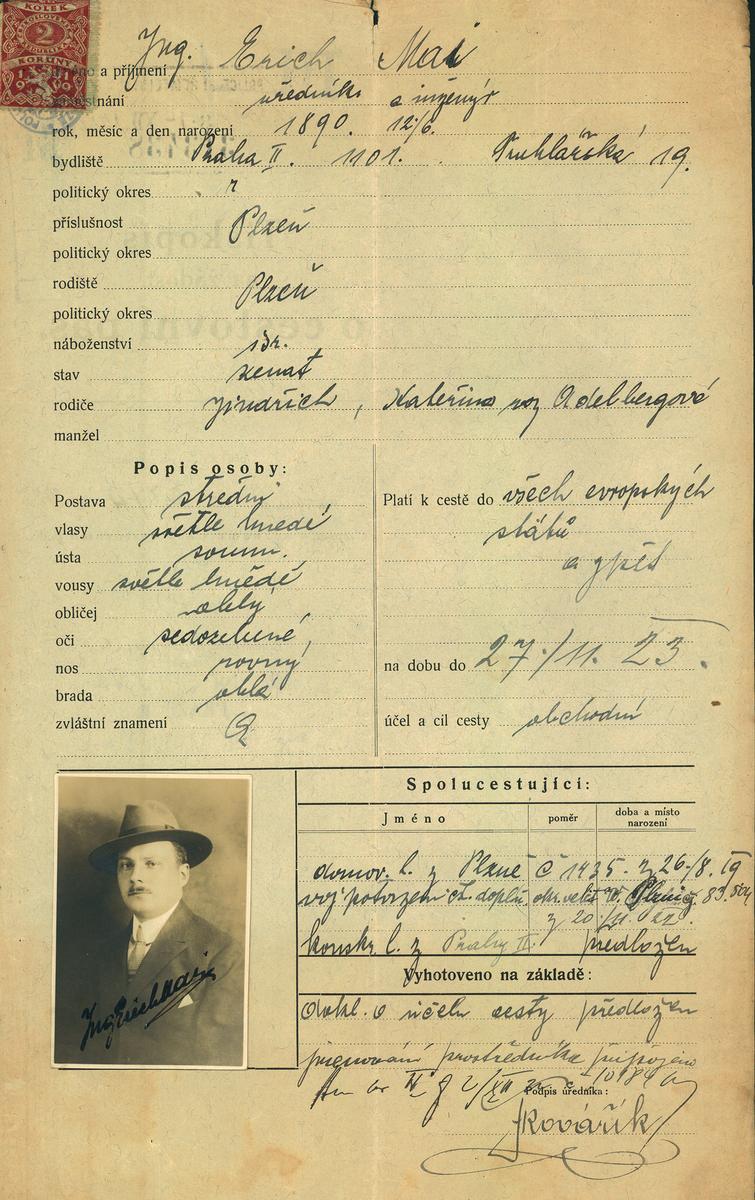 KOLEK
2
KORUNY
Jméno a příjmení Ing. Erich Mai
zaměstnání úředník a inženýr
rok, měsíc a den narození 1890. 12/6.
bydliště Praha II. 1101. Truhlářská 19.
politický okres
příslušnost Plzeň
politický okres
rodiště Plzeň
politický okres
náboženství isr.
stav ženat
rodiče Jindřich, Kateřina roz Adelbergové
manžel
Popis osoby:
Postava střední
vlasy světle hnědé
ústa soum.
vousy světle hnědé
obličej oblý
oči šedozelené,
nos rovný
brada oblá
zvláštní znamení
Platí k cestě do všech evropských
států
a zpět
na dobu do 27/11. 23.
účel a cíl cesty obchodní
Spolucestující:
Jméno poměr doba a místo narození
domov. l. z Plzně č 1435 z 26/8. 19
voj potvrzení čs. doplň. okr. velit.
z 20/11 22.
konskr. l. z Prahy II. předložen
Vyhotoveno na základě:
dokl. o účelu cesty předložen
jmenování prostředníka připojeno
Podpis úředníka:
Kovářík
Ing Erich Mai